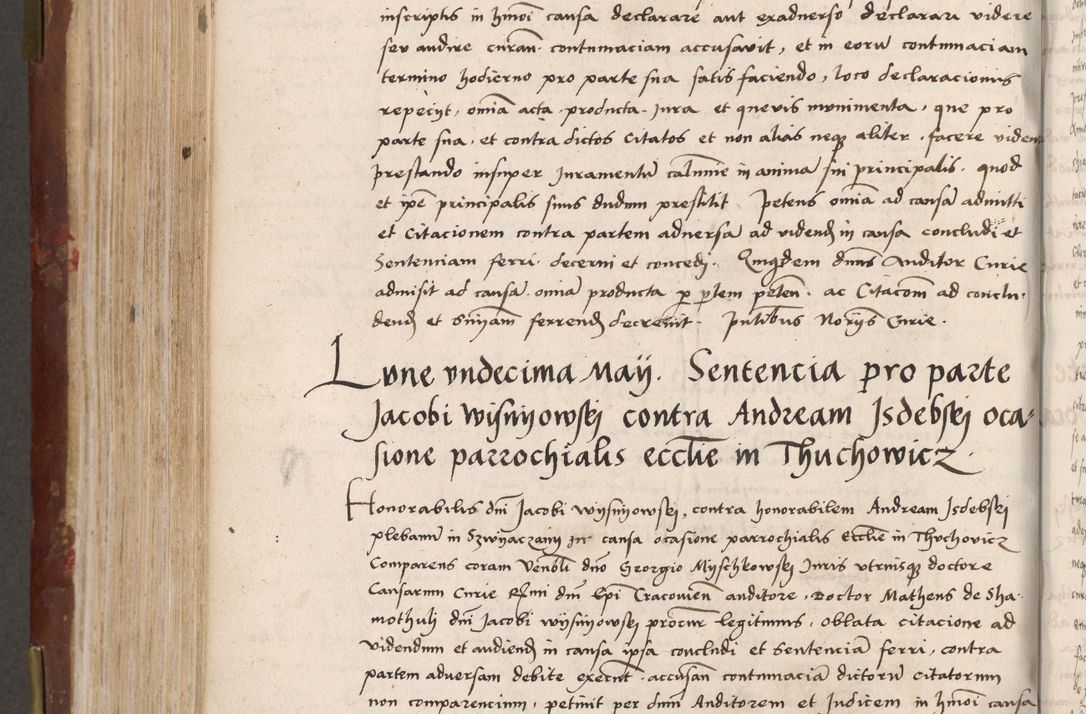 inscriptis in hmoi causa declarare aut exadverso declarari videre
seu audire curan. contumaciam accusavit, et in eorum contumaciam
termino hodierno pro parte sua satisfaciendo, loco declaracionis
repecijt, omia acta producta. Jura et quevis munimenta, que pro
parte sua, et contra dictos citatos et non alias neqz aliter facere viden
prestando insuper Juramentu calumnie in anima sui principalis. quod
et ipe principalis suus dudum prestitit. Petens omia ad causa admitti
et Citacionem contra partem adversa ad videnđ in causa concludi et
Sentenciam ferri decerni et concedi. Quiquidem dnus Auditor Curie
admisit ad causa omia producta p ptem peten. ac Citacom ad conclu-
dend et sniam ferrend decrevit. Pntibus Norijs Curie.
Lune undecima Maij. Sentencia pro parte
Jacobi Wisnijowskj contra Andream Jsdebskj oca-
sione parrochialis ecclie in Thuchowicz.
Honorabilis dni Jacobi Wijsnijowskj, contra honorabilem Andream Jsdebskj
plebanu in Szwijaczanij in causa ocasione parrochialis Ecclie in Thuchovicz
Comparens coram Venbli dno Georgio Mijschkowskj Juris utriusqz doctore
Causarum Curie Rmi dni Epi Cracovien auditore, Doctor Matheus de Sha-
mothuli dni Jacobi Wijsnijowskj procur legitimus, oblata citacione ad
videndum et audiend in causa ipsa concludi et Sentencia ferri, contra
partem adversam debite execut. accusan contumacia dictoru citatorum
non comparencium, petivit per dnm Auditorem et Judicem in hmoi causa